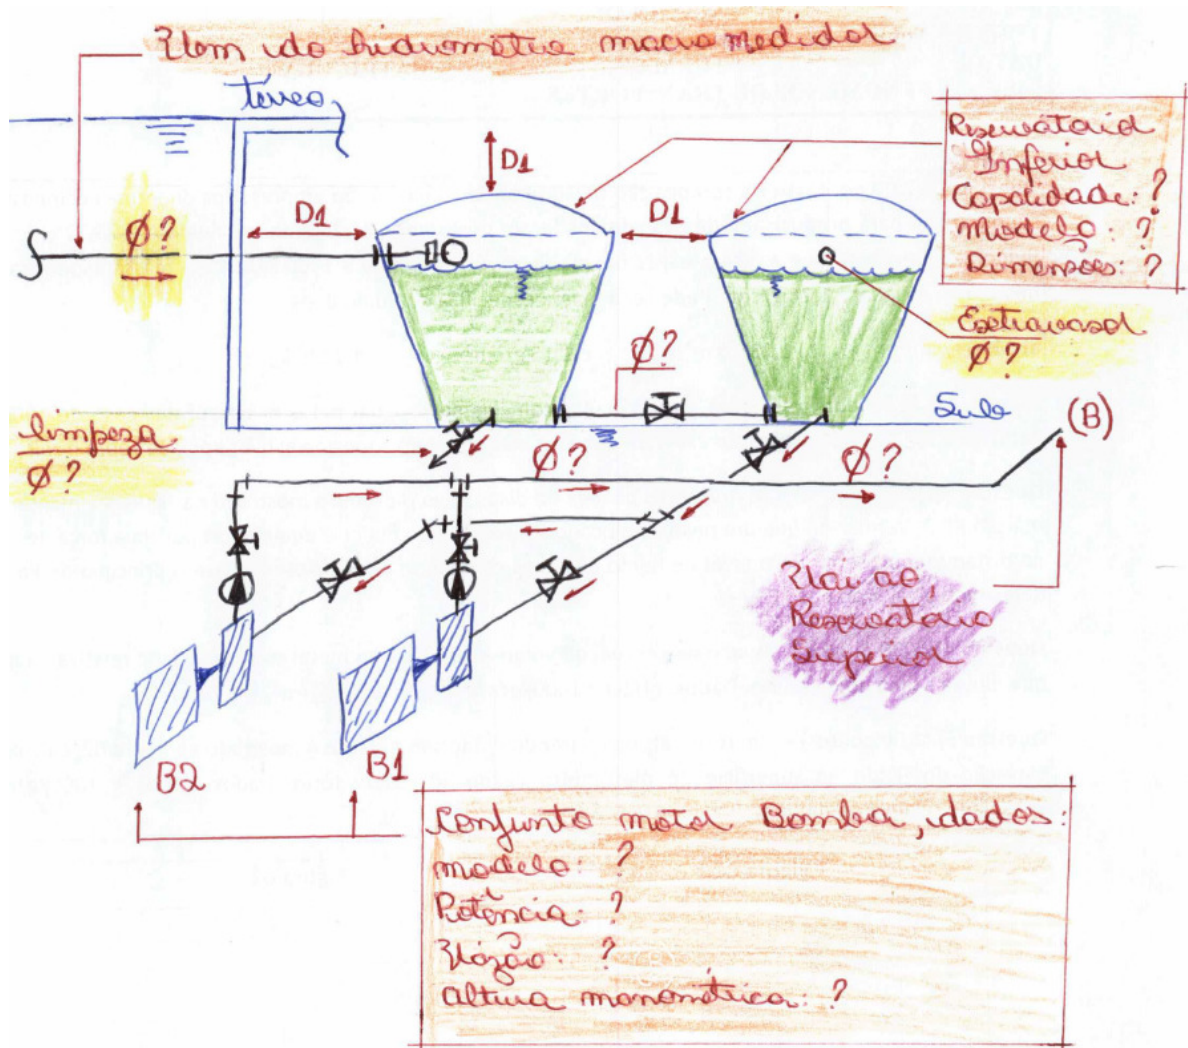 Vem do hidrômetro macro medidor
térreo
D1
Reservatório
Inferior
Capacidade: ?
Modelo: ?
Dimensões: ?
Ø?
D1
D1
Extravasor
Ø?
Ø?
Sub
(B)
limpeza
Ø?
Ø?
Ø?
Vai ao
Reservatório
Superior
B2
B1
Conjunto motor Bomba, dados:
modelo: ?
Potência: ?
Vazão: ?
Altura manométrica: ?